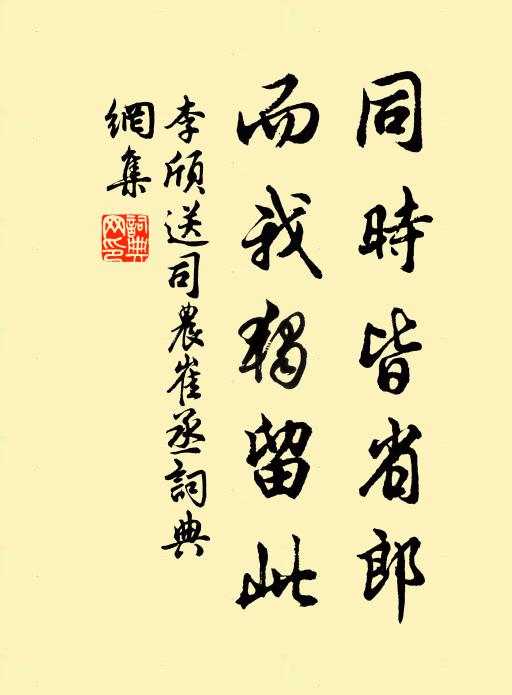 同時皆省郎
而我獨留此
李頎送司農崔丞詞典
網集
詞典網印